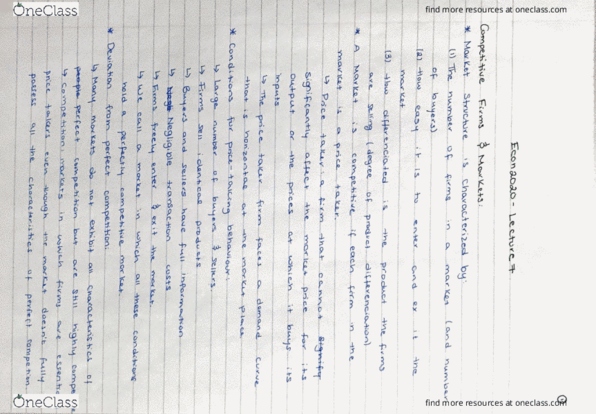 OneClass
find more resources at oneclass.com
Econ 2020 - Lecture 7
Competitive Firms & Markets:
* Market Structure is Characterized by:
(1) The number of firms in a market (and number
of buyers)
(2) How easy it is to enter and exit the
market
(3) How differentiated is the product the firms
are selling (degree of product differentiation)
* A Market is competitive if each firm in the
market is a price taker
↳ Price taker: a firm that cannot
significantly affect the market price for its
output or the prices at which it buys its
inputs
↳ The price taker firm faces a demand curve
that is horizontal at the market price
* Conditions for price-taking behaviour:
↳ Large number of buyers & sellers
↳ Firms sell identical products
↳ Buyers and sellers have full information
↳ Negligible transaction costs
↳ Firms freely enter & exit the market
↳ We call a market in which all these conditions
hold a perfectly competitive market
* Deviation from perfect competition:
↳ Many markets do not exhibit all characteristics of
perfect competition but are still highly compe
↳ Competition: markets in which firms are essenti
price takers even though the market doesn't fully
possess all the characteristics of perfect
OneClass
find more resources at oneclass.com